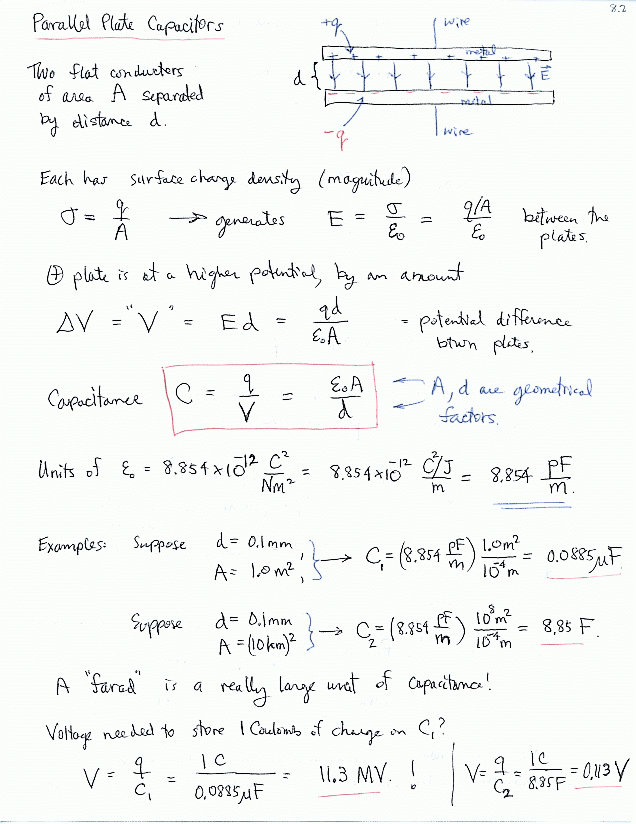 8.2
Parallel Plate Capacitors
+q wire
metal
Two flat conductors
of area A separated
by distance d.
d { E⃗
metal
-q wire
Each has surface charge density (magnitude)
σ = q/A → generates E = σ/ε₀ = (q/A)/ε₀ between the
plates.
⊕ plate is at a higher potential, by an amount
ΔV = "V" = Ed = qd/ε₀A = potential difference
btwn plates.
Capacitance C = q/V = ε₀A/d ← A, d are geometrical
factors.
Units of ε₀ = 8.854×10⁻¹² C²/Nm² = 8.854×10⁻¹² (C²/J)/m = 8.854 pF/m.
Examples: Suppose d = 0.1mm,
A = 1.0 m², } → C₁ = (8.854 pF/m) 1.0m²/10⁻⁴m = 0.0885μF
Suppose d = 0.1mm
A = (10km)² } → C₂ = (8.854 pF/m) 10⁸m²/10⁻⁴m = 8.85 F.
A "farad" is a really large unit of capacitance!
Voltage needed to store 1 Coulomb of charge on C₁?
V = q/C₁ = 1C/0.0885μF = 11.3 MV. ! | V = q/C₂ = 1C/8.85F = 0.113 V